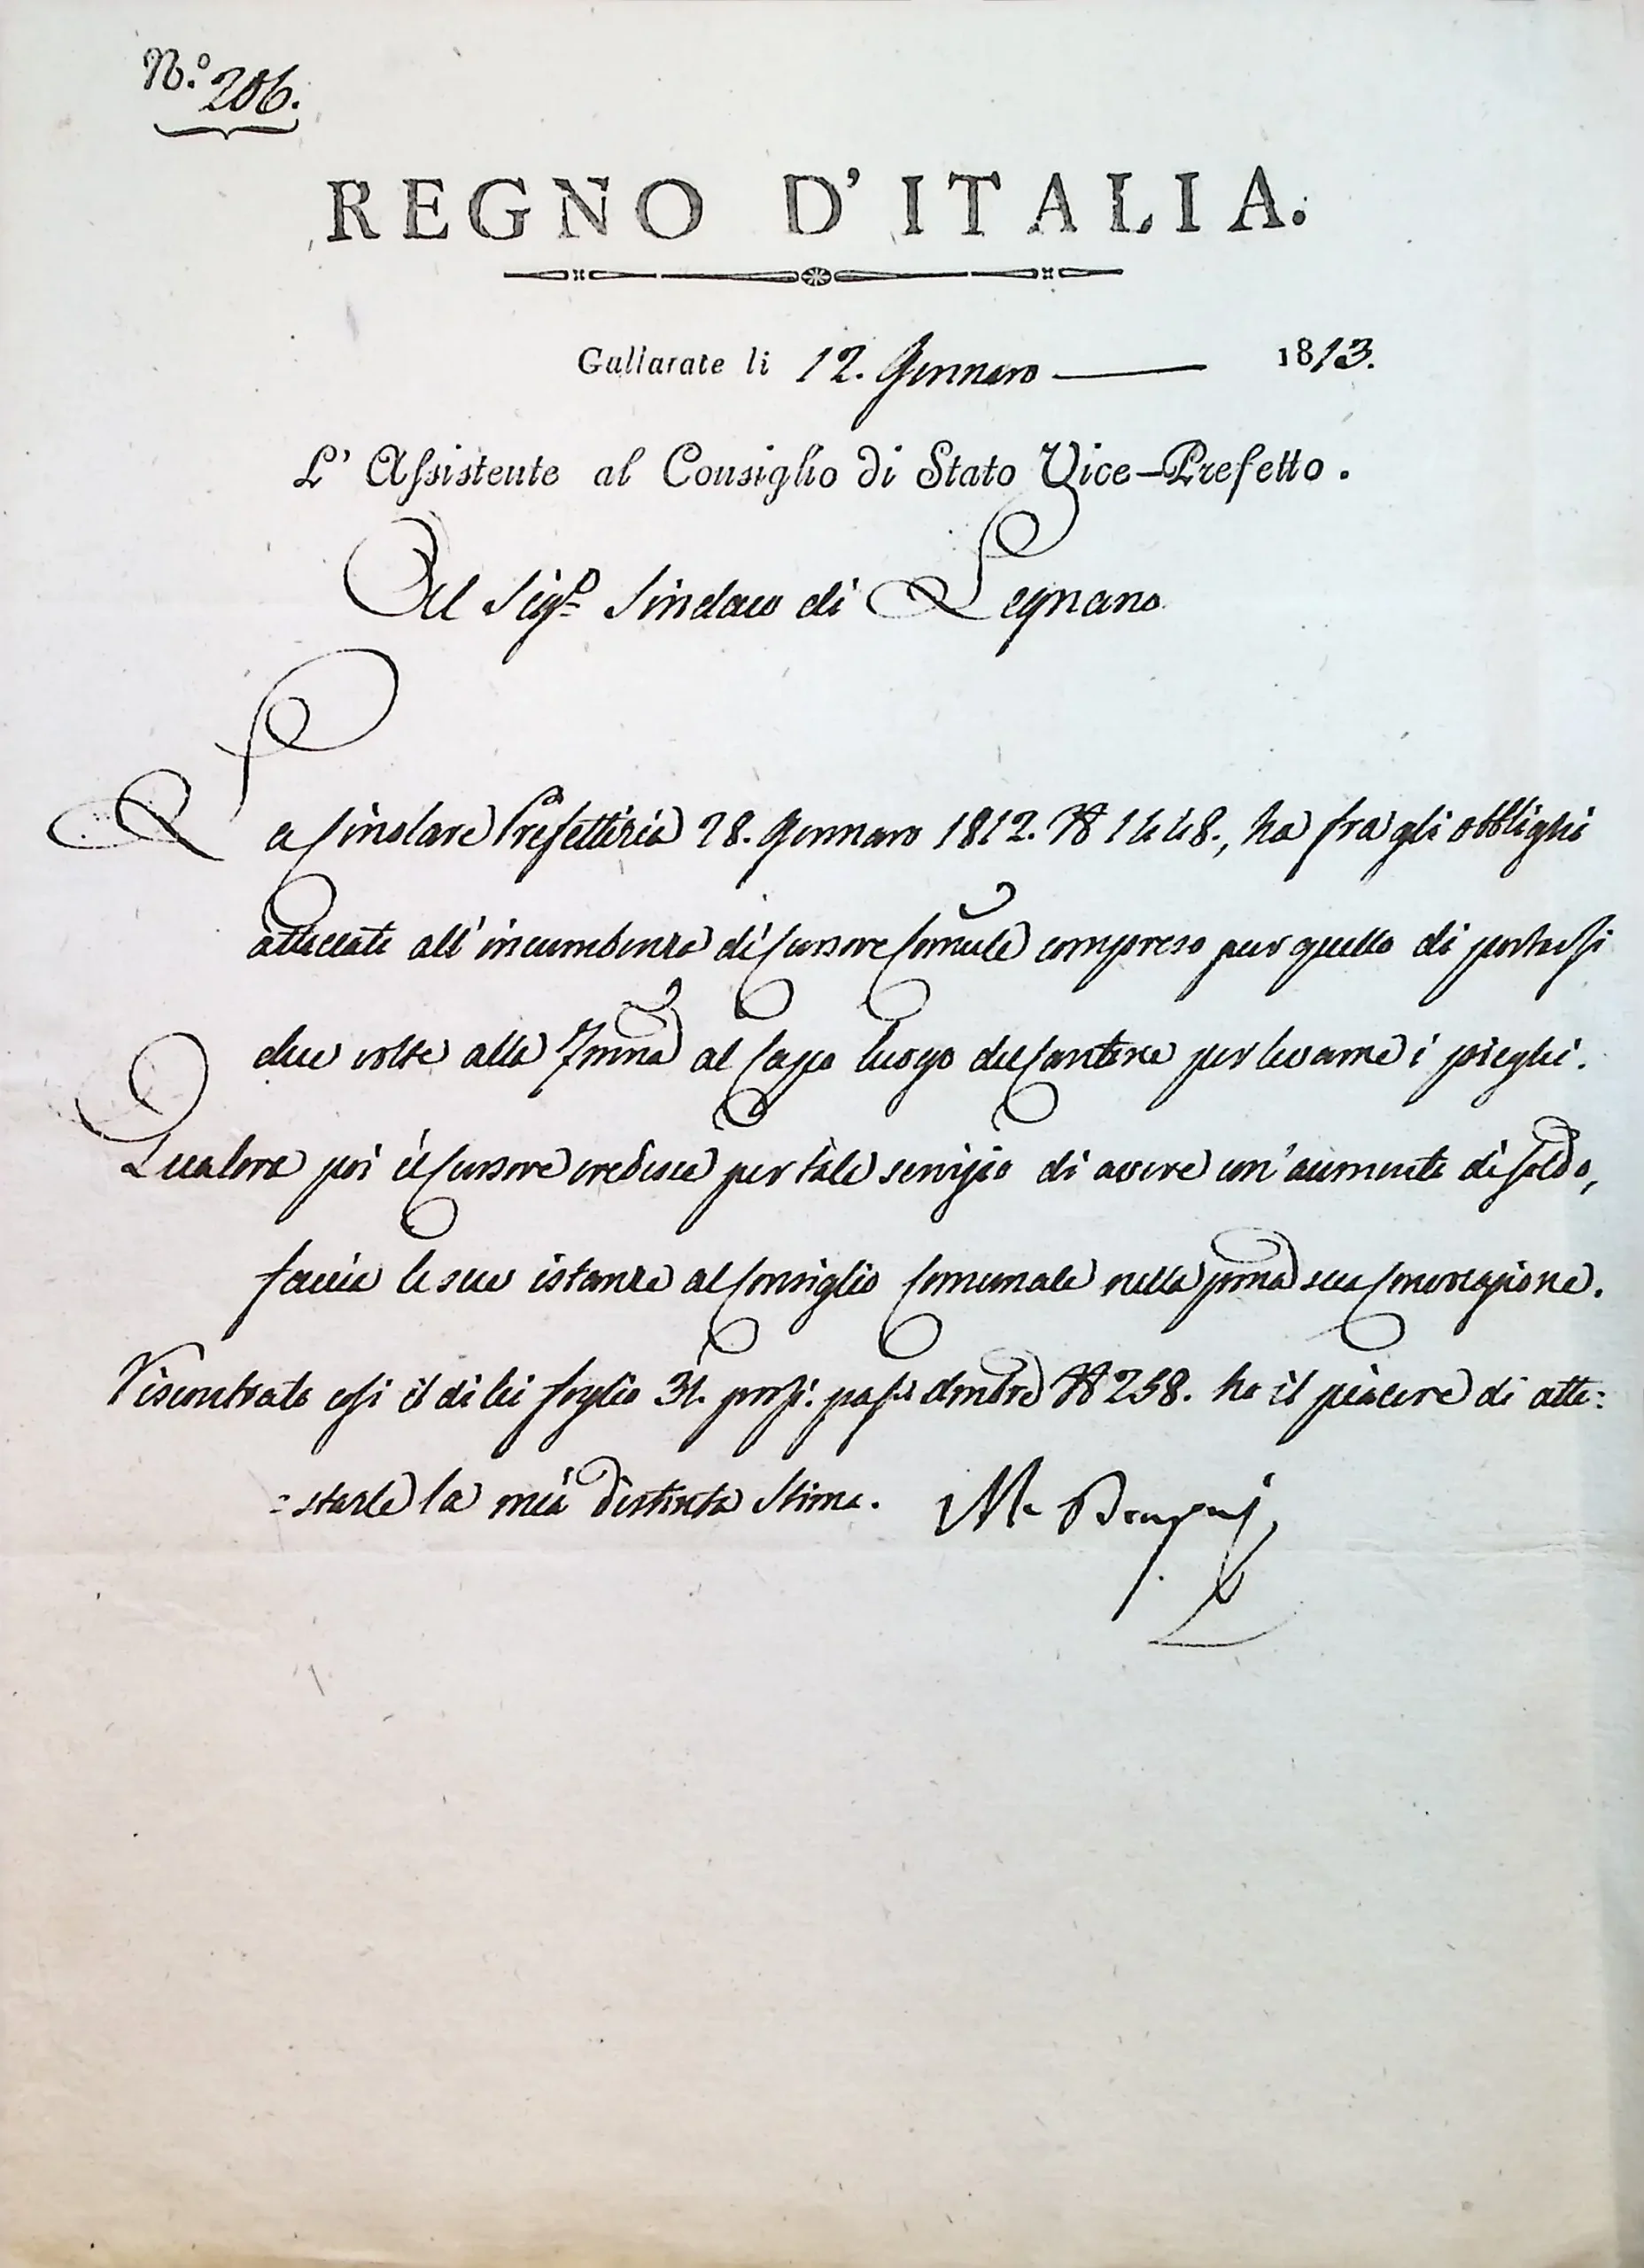 N.º 206.
REGNO D'ITALIA.
Gallarate li 12. Gennaro 1813.
L'Assistente al Consiglio di Stato Vice-Prefetto.
Al Sigr. Sindaco di Legnano
La Circolare Prefettizia 28. Gennaro 1812. N 1448., ha fra gli obblighi
attaccati all'incumbenza di Cursore Comule compreso pur quello di portarsi
due volte alla 7mna al Capo luogo del Cantone per levarne i pieghi.
Qualora poi il Cursore credesse per tale servizio di avere un'aumento di soldo,
faccia le sue istanze al Consiglio Comunale nella pma sua Convocazione.
Riscontrato così il di lei foglio 31. pross. pass. Dmbre N 258. ho il piacere di atte:
:starle la mia distinta stima.